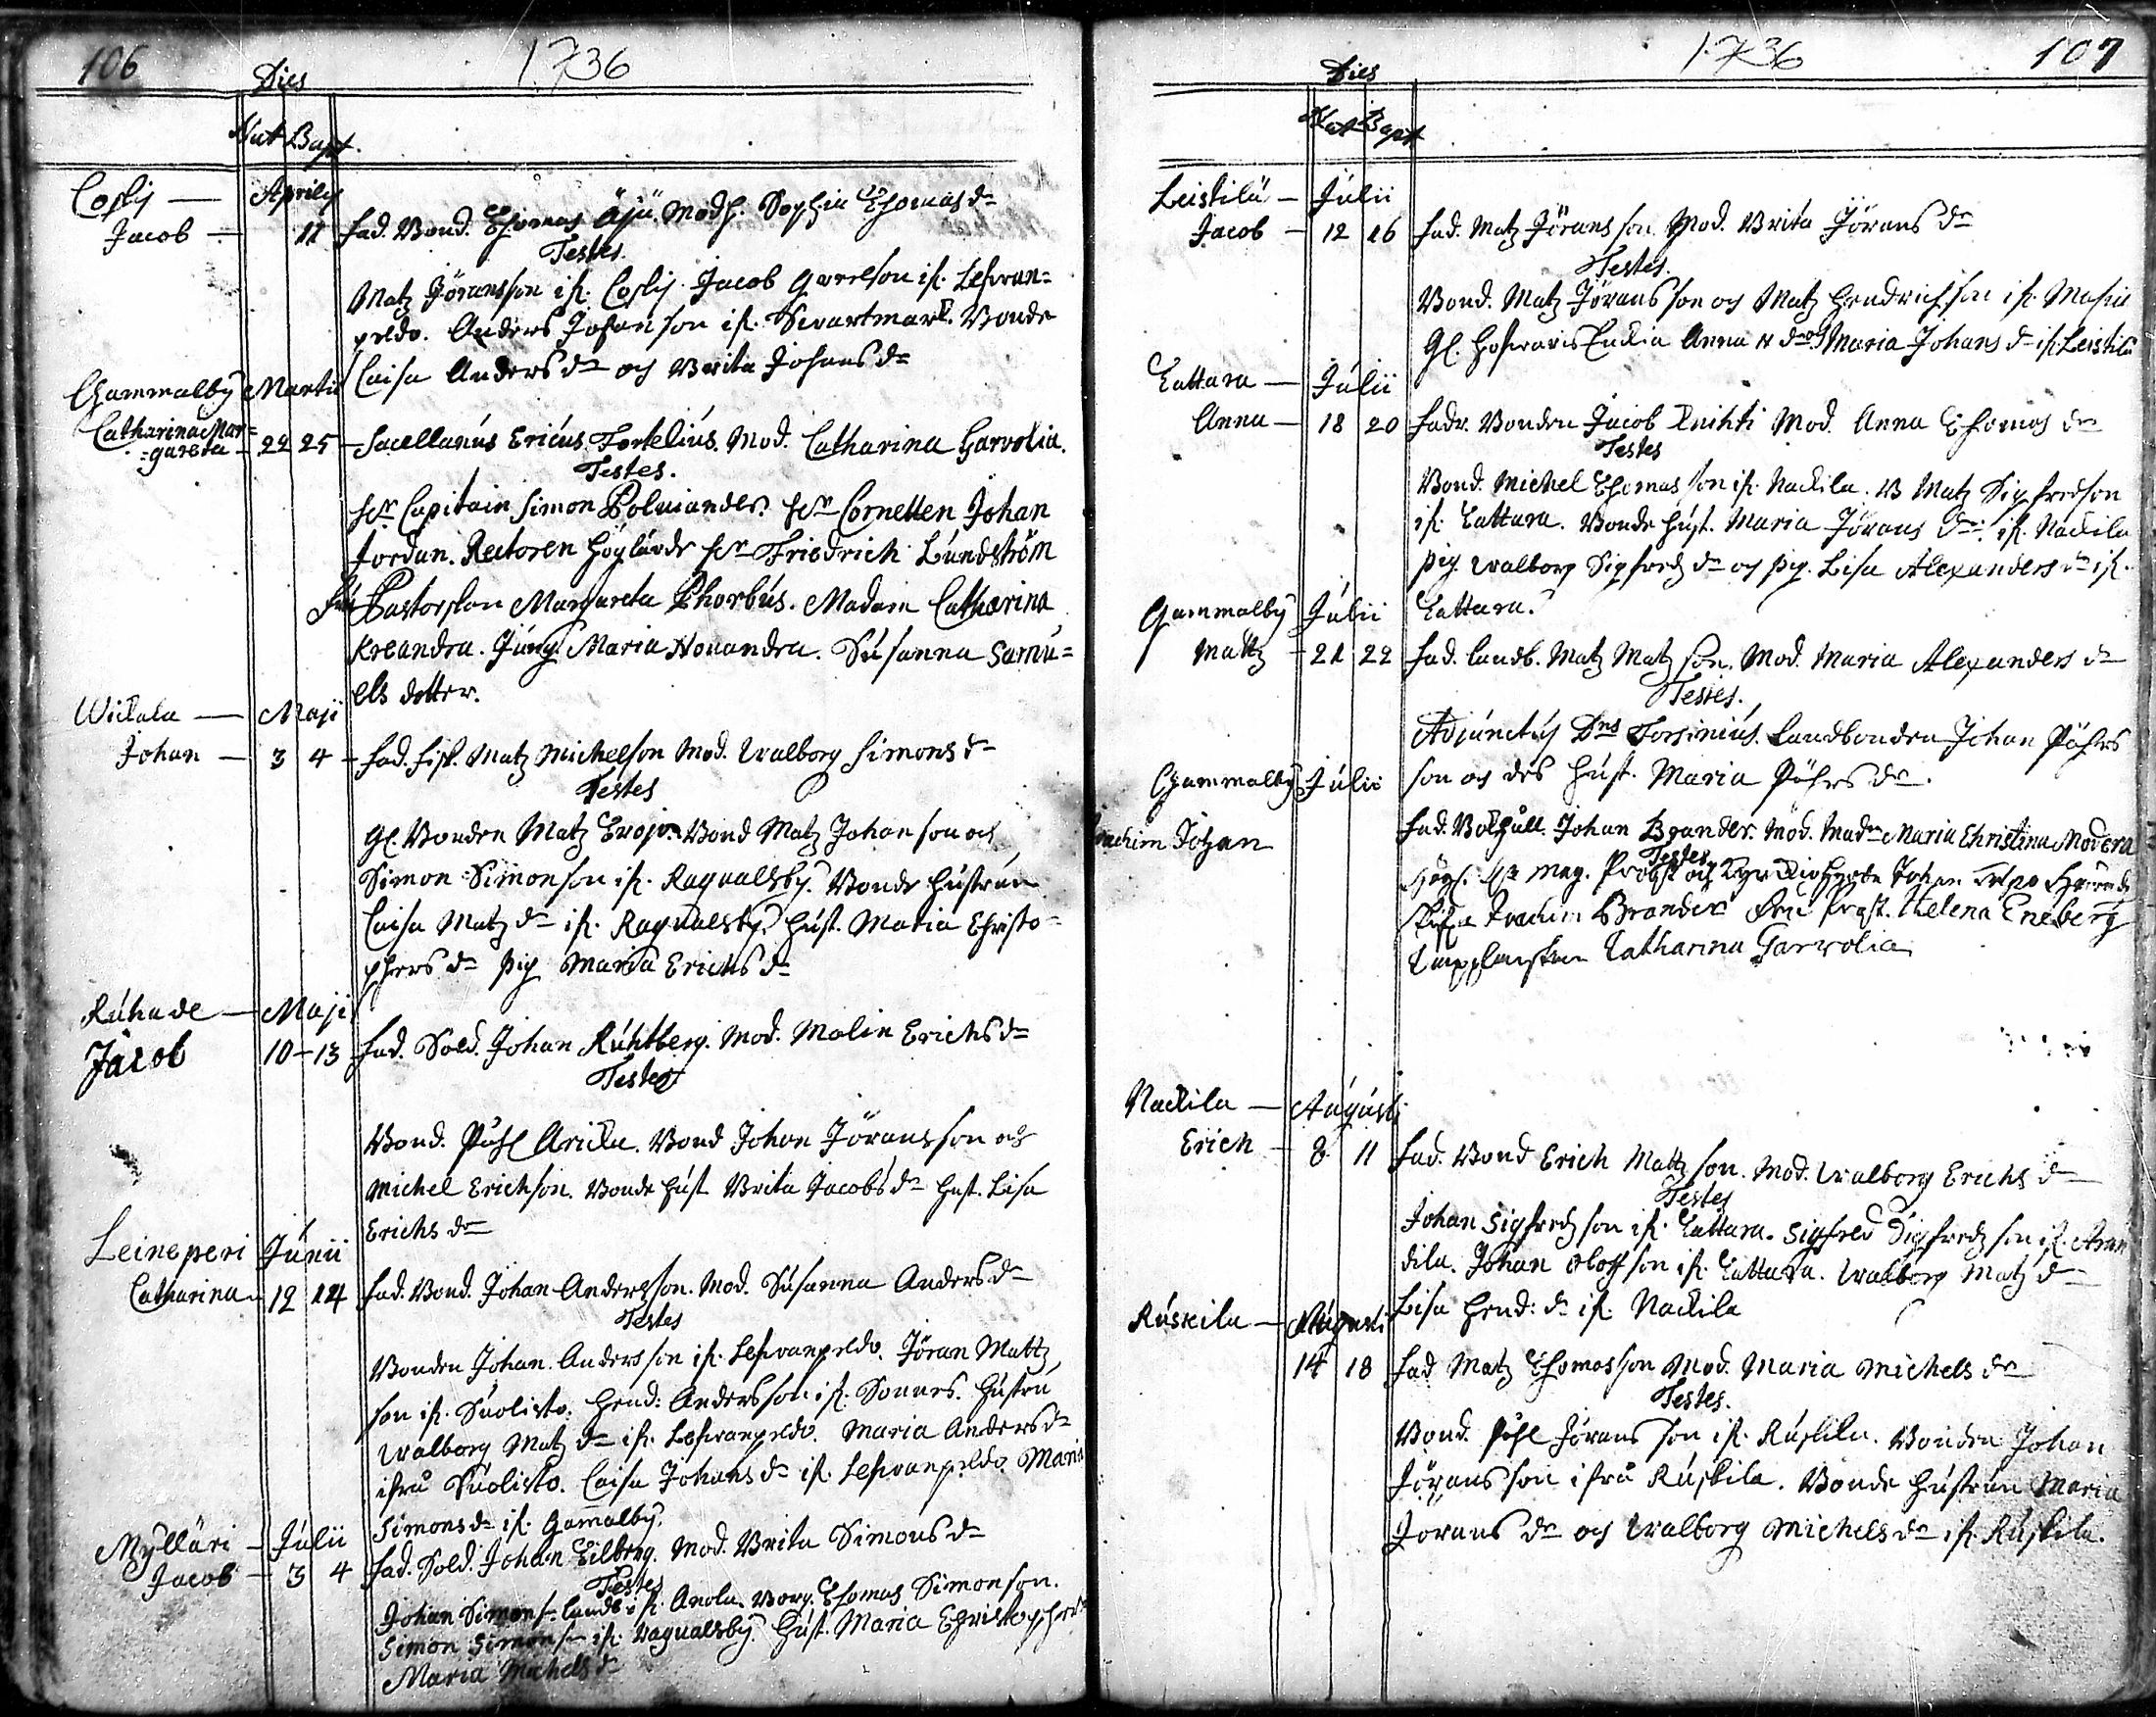 106
1736
Dies
Nat Bapt.
Cossij — Aprilij
Jacob — 11 Fad. Bond. Thomas Äjä. Modh. Sophia Thomas dr
Testes.
Matz Jöransson if. Cossij. Jacob if. Lefwan=
peldo. Anders Johanson if. Swartmark. Bonde
Caisa Anders dr och Brita Johans dr
Gammalby Martii
Catharina Mar=
=gareta — 22 25 — Sacellanus Ericus Fortelius. Mod. Catharina Garvolia.
Testes.
Hr Capitain Simon Polviander. Hr Cornetten Johan
Jordan. Rectoren Höglärde Hr Friedrich Lundström
Fru Pastorskan Margareta Phorbus. Madam Catharina
Kreandra. Jungf. Maria Novandra. Susanna Samu=
els dotter.
Wickala — Maji
Johan — 3 4 — Fad. Matz Michelson Mod. Walborg Simons dr
Testes
Gl. Bonden Matz Bond Matz Johanson och
Simon Simonson if. Ragualsby. Bonde hustrun
Caisa Matz dr if. Ragualsby. Hust. Maria Christo=
phers dr Pig Maria Erichs dr
Ruhade — Maji
Jacob 10 — 13 Fad. Sold. Johan Ruhtberg. Mod. Malin Erichs dr
Testes
Bond. Påhl Aricka. Bond Johan Jöransson och
Michel Erichson. Bonde hust Brita Jacobs dr Hust. Lisa
Erichs dr
Leineperi Junii
Catharina 12 14 Fad. Bond. Johan Andersson. Mod. Susanna Anders dr
Testes
Bonden Johan Andersson if. Lefwanpeldo. Jöran Mattz
son if. Suolisto. Hend: Andersson if. Sonnes. Hustru
Walborg Matz dr if. Lefwanpeldo. Maria Anders dr
ifrå Suolisto. Caisa Johans dr if. Lefwanpeldo. Maria
Simons dr if. Gamalby.
Mylläri — Julii
Jacob — 3 4 Fad. Sold. Johan Eilberg. Mod. Brita Simons dr
Testes
Johan Simons if. Anola. Thomas Simonson.
Simon Simons if. Ragualsby. Hust. Maria Christophers
Maria Michels dr
1736
107
Dies
Nat Bapt
Leistilä — Julii
Jacob — 12 16 Fad. Matz Jöransson Mod. Brita Jörans dr
Testes.
Bond. Matz Jöransson och Matz Hendrichson if. Masia
Gl. Anna dr Maria Johans dr if. Leistilä
Tattara — Julii
Anna — 18 20 Fadr. Bonden Jacob Knihti Mod. Anna Thomas dr
Testes
Bond. Michel Thomasson if. Nackila. B Matz Sigfredson
if. Tattara. Bonde hust. Maria Jörans dr if. Nackila
Pig Walborg Sigfreds dr och Pig. Lisa Alexanders dr if.
Tattara.
Gammalby Julii
Mattz — 21 22 Fad. Landb. Matz Matzson. Mod. Maria Alexanders dr
Testes.
Adjunctus Dns Forsinius. Landbonden Johan Påhls
son och des hust. Maria Påhls dr.
Gammalby Julii
Joachim Johan
Fad. Johan Brander. Mod. Madm Maria Christina Modera
Testes
Hr Mag. Probst och Kyrckioherde Johan
Joachim Brander Helena Eneberg
Capplanskan Catharina Garvolia
Nackila — Augusti
Erich — 8 11 Fad. Bond Erich Mattzson. Mod. Walborg Erichs dr
Testes
Johan Sigfredson if. Tattara. Sigfred Sigfredson if. Aran
dila. Johan Olofson if. Tattara. Walborg Matz dr
Lisa Hend: dr if. Nackila
Ruskila — Augusti
14 18 Fad Matz Thomasson Mod. Maria Michels dr
Testes.
Bond. Påhl Jöransson if. Ruskila. Bonden Johan
Jöransson ifrå Ruskila. Bonde hustrun Maria
Jörans dr och Walborg Michels dr if. Ruskila.